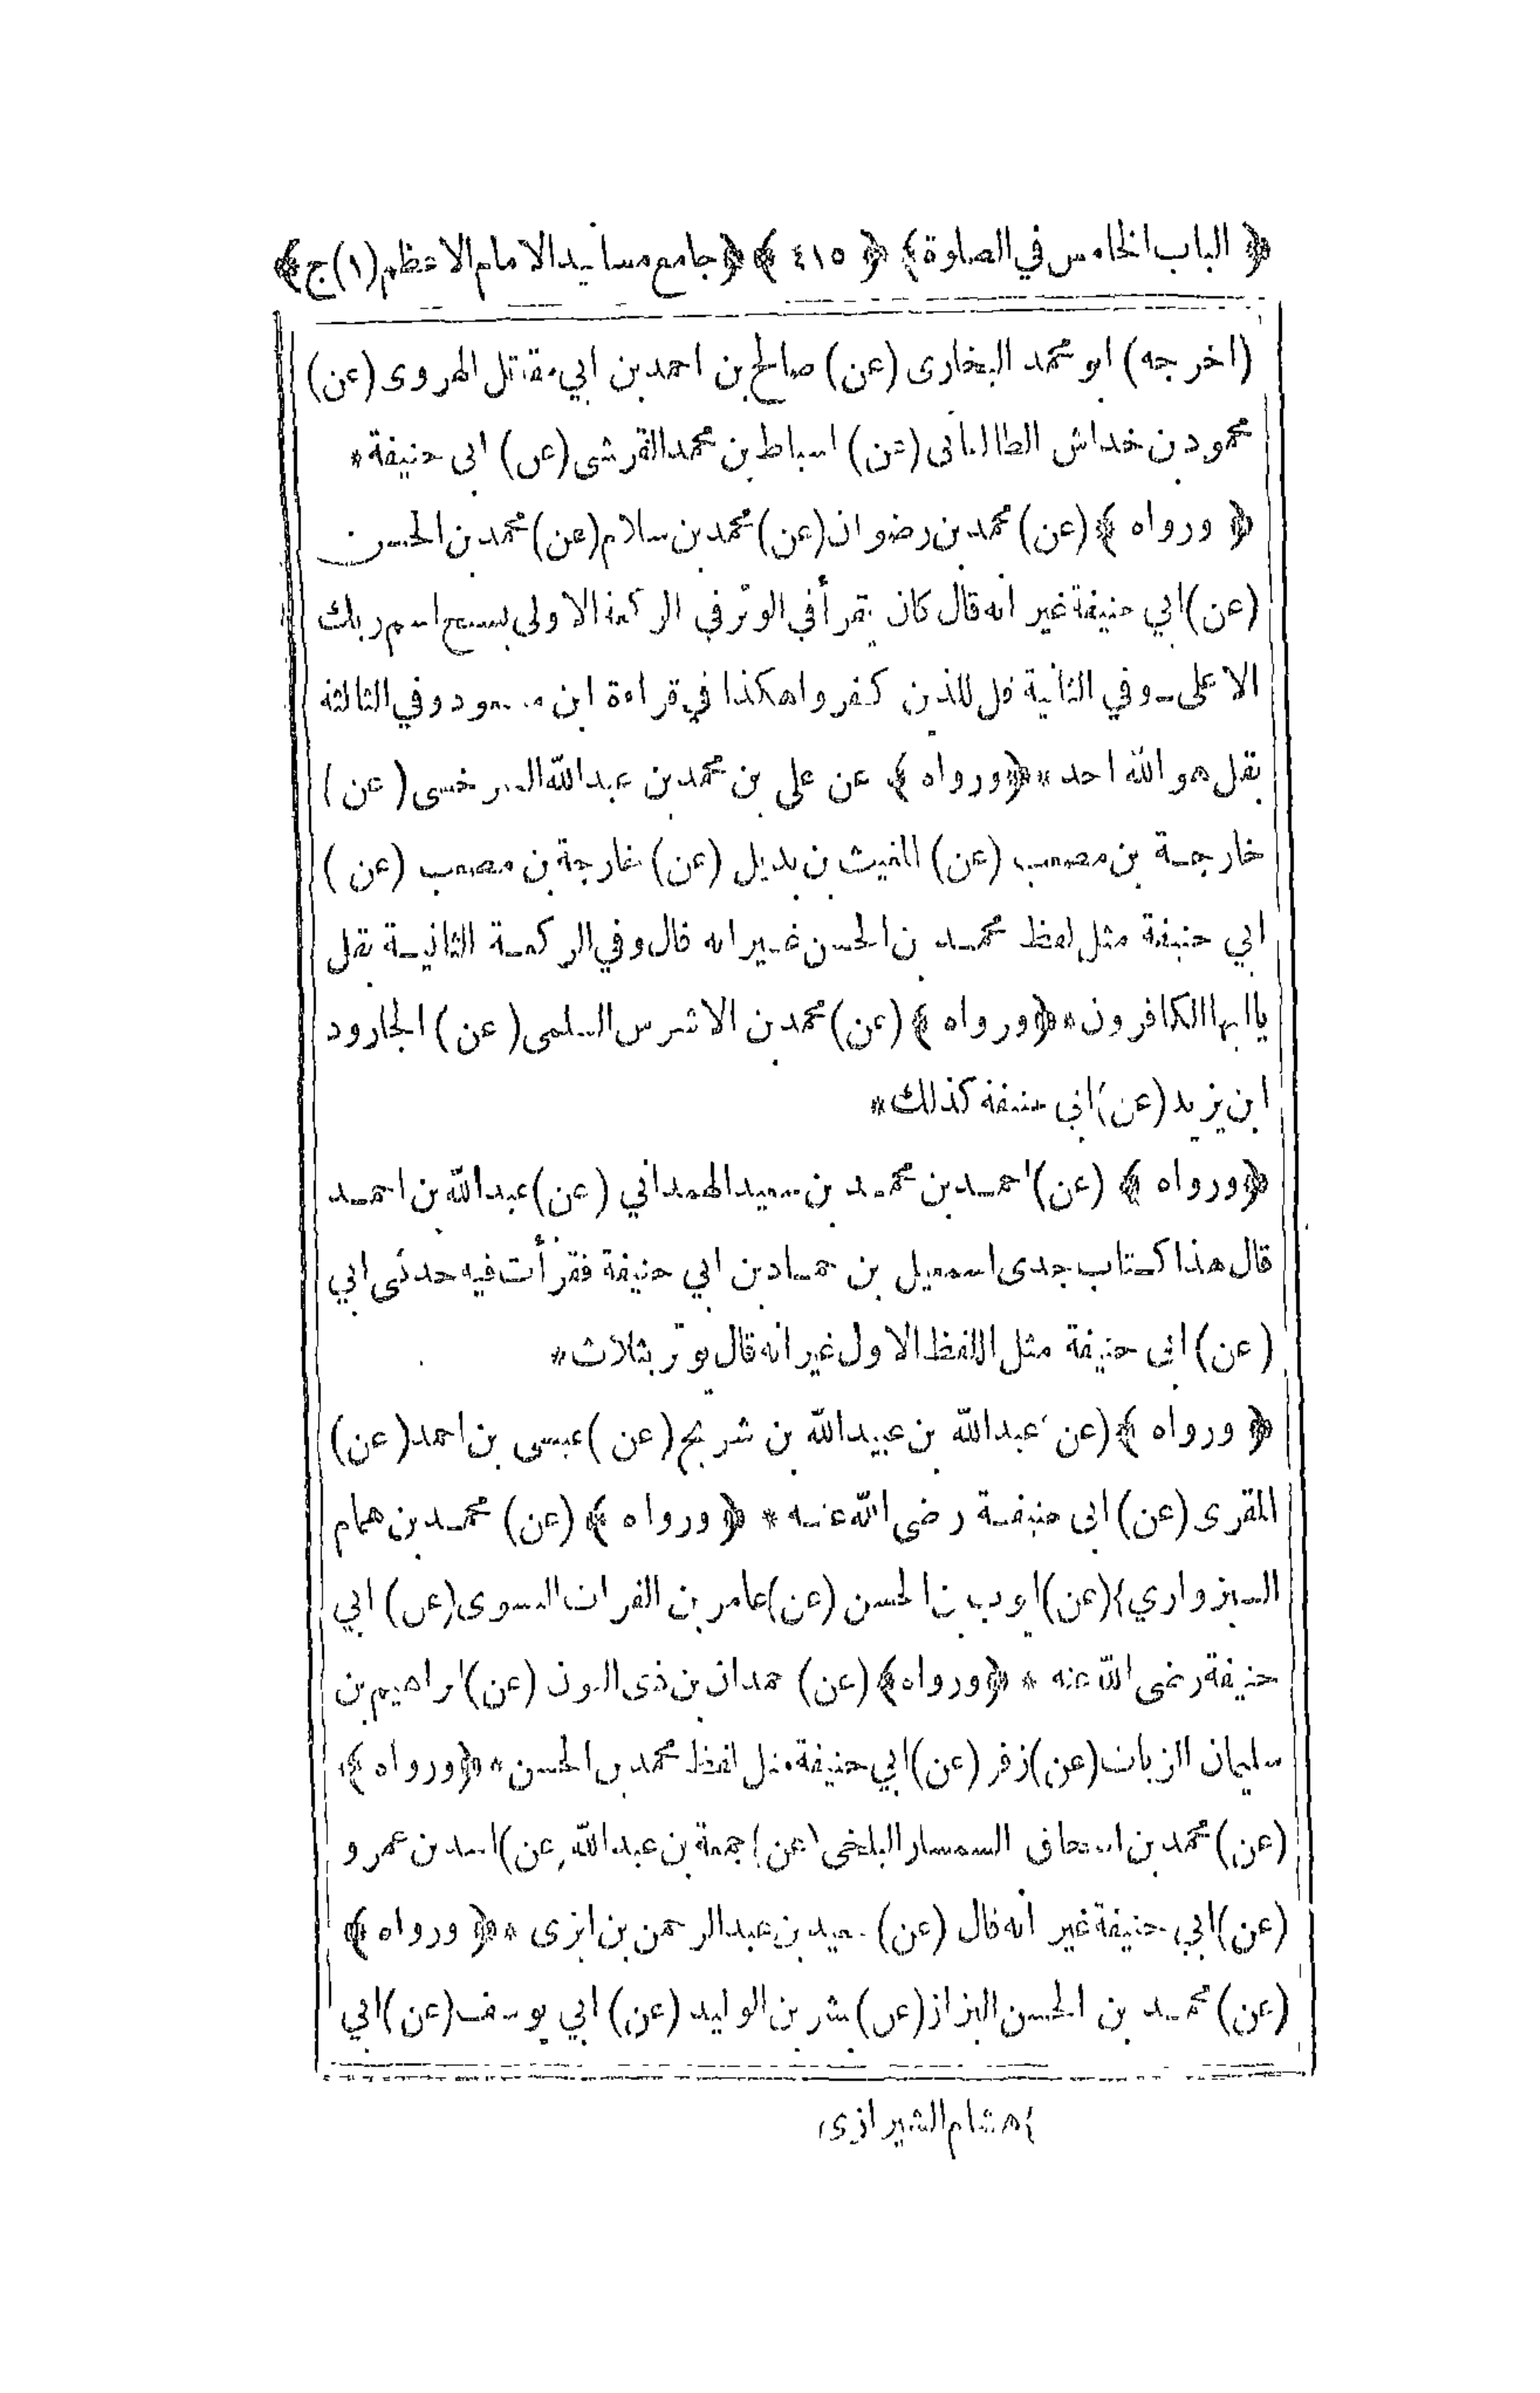 ﴿ الباب الخامس في الصلوة ﴾ ﴿ ٤١٥ ﴾ ﴿ جامع مسانيد الامام الاعظم (١) ج ﴾
(اخرجه) ابو محمد البخارى (عن) صالح بن احمد بن ابي مقاتل الهروى (عن)
محمود بن خداش الطالقانى (عن) اسباط بن محمد القرشى (عن) ابى حنيفة *
﴿ ورواه ﴾ (عن) محمد بن رضوان (عن) محمد بن سلام (عن) محمد بن الحسن
(عن) ابي حنيفة غير انه قال كان يقرأ في الوتر في الركعة الاولى بسبح اسم ربك
الاعلى ـ وفي الثانية قل للذين كفروا هكذا في قراءة ابن مسعود وفي الثالثة
بقل هو الله احد * ﴿ ورواه ﴾ عن على بن محمد بن عبد الله السرخسى (عن)
خارجة بن مصعب (عن) المغيث بن بديل (عن) خارجة بن مصعب (عن)
ابي حنيفة مثل لفظ محمد بن الحسن غير انه قال وفي الركعة الثانية بقل
يا ايها الكافرون * ﴿ ورواه ﴾ (عن) محمد بن الاشرس السلمى (عن) الجارود
ابن يزيد (عن) ابى حنيفة كذلك *
﴿ ورواه ﴾ (عن) احمد بن محمد بن سعيد الهمداني (عن) عبد الله بن احمد
قال هذا كتاب جدى اسمعيل بن حماد بن ابي حنيفة فقرأت فيه حدثنى ابي
(عن) ابى حنيفة مثل اللفظ الاول غير انه قال يوتر بثلاث *
﴿ ورواه ﴾ (عن) عبد الله بن عبيد الله بن شريح (عن) عيسى بن احمد (عن)
المقرى (عن) ابى حنيفة رضى الله عنه * ﴿ ورواه ﴾ (عن) محمد بن همام
السبزواري (عن) ايوب بن الحسن (عن) عامر بن الفرات النسوى (عن) ابي
حنيفة رضى الله عنه * ﴿ ورواه ﴾ (عن) حمدان بن ذى النون (عن) ابراهيم بن
سليمان الزيات (عن) زفر (عن) ابي حنيفة مثل لفظ محمد بن الحسن * ﴿ ورواه ﴾
(عن) محمد بن اسحاق السمسار البلخى (عن) جمعة بن عبد الله (عن) اسد بن عمرو
(عن) ابي حنيفة غير انه قال (عن) سعيد بن عبد الرحمن بن ابزى * ﴿ ورواه ﴾
(عن) محمد بن الحسن البزاز (عن) بشر بن الوليد (عن) ابي يوسف (عن) ابي
﴿ هشام الشيرازى ﴾